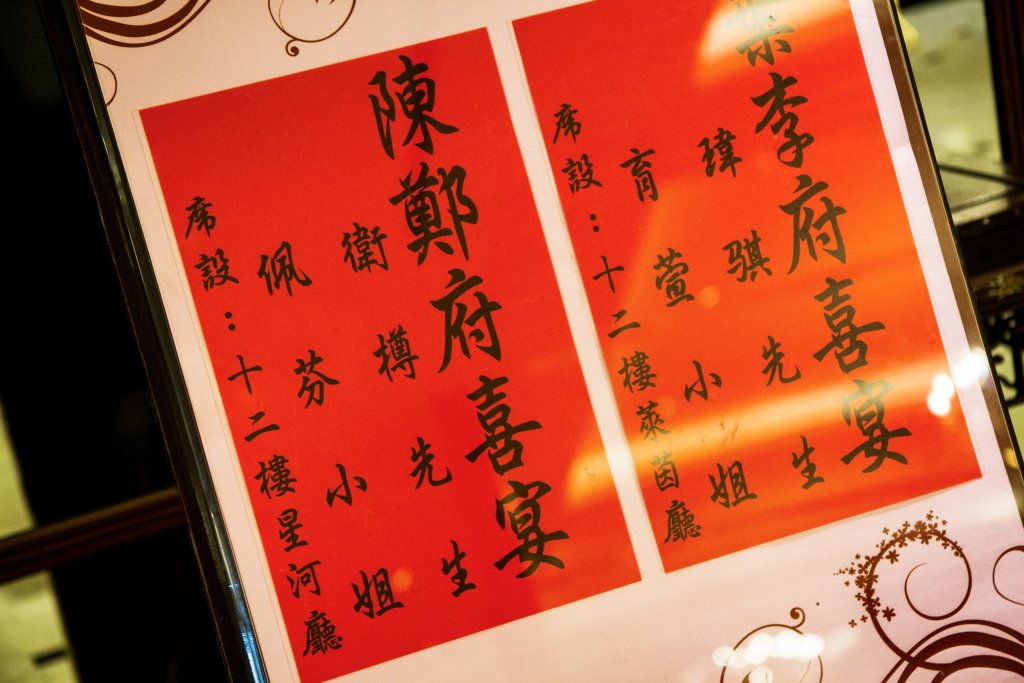 葉李府喜宴
瑋騏先生
育萱小姐
席設：十二樓萊茵廳
陳鄭府喜宴
衛樽先生
佩芬小姐
席設：十二樓星河廳